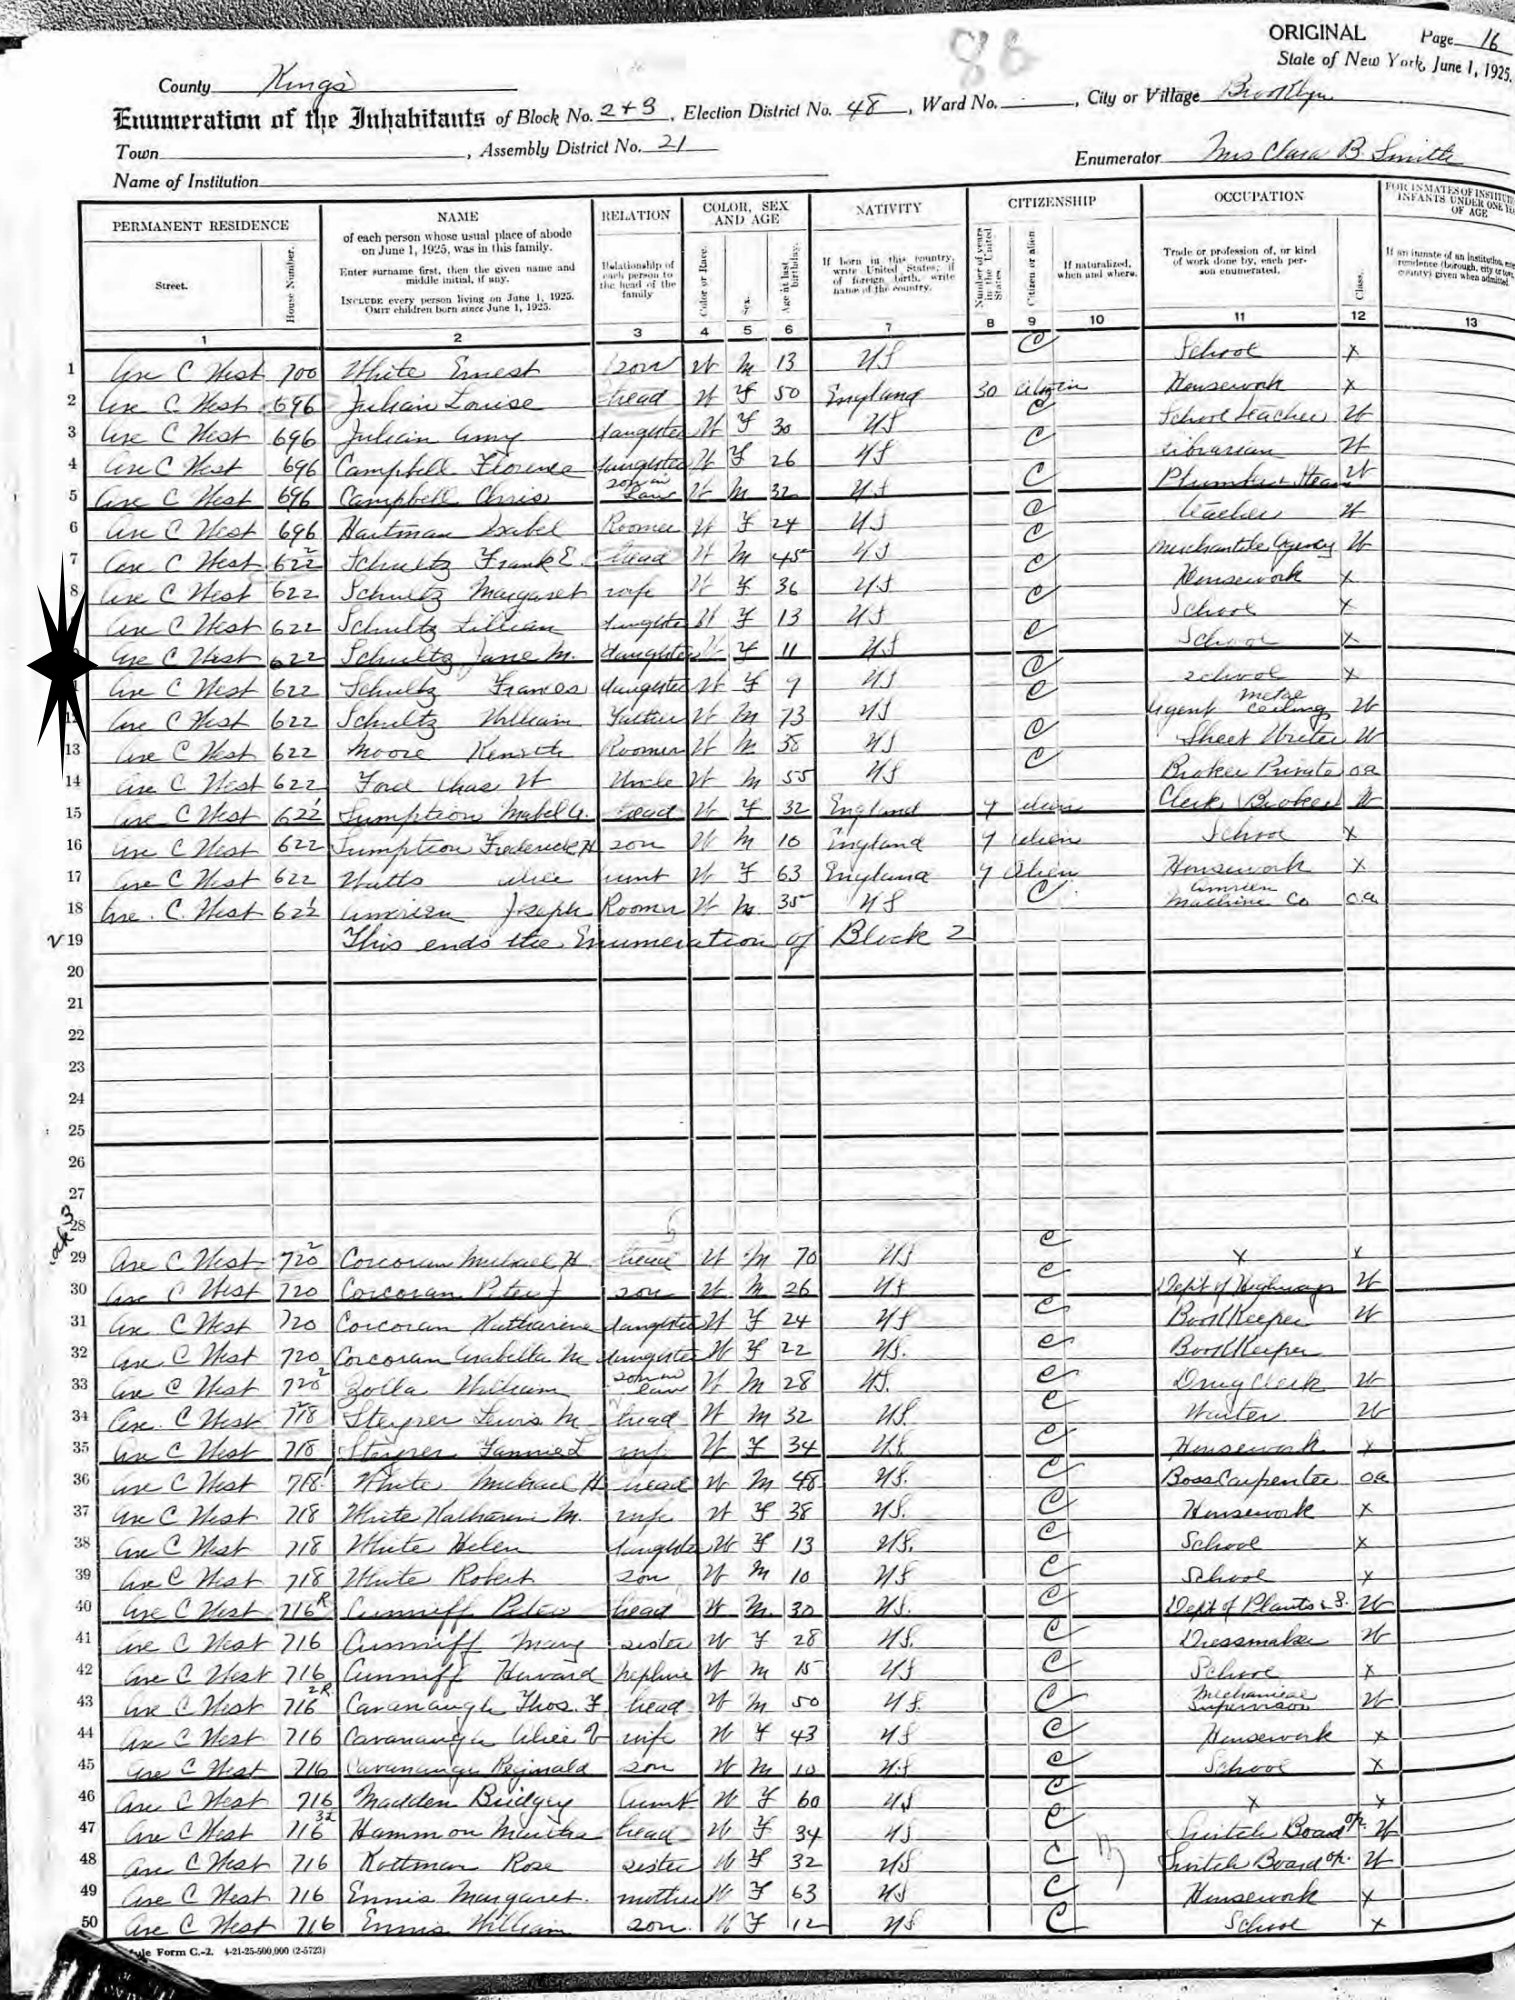 88
ORIGINAL Page 16
State of New York, June 1, 1925.
County Kings
Enumeration of the Inhabitants of Block No. 2+3, Election District No. 48, Ward No. , City or Village Brooklyn
Town , Assembly District No. 21
Enumerator Mrs Clara B. Smith
Name of Institution
PERMANENT RESIDENCE NAME RELATION COLOR, SEX AND AGE NATIVITY CITIZENSHIP OCCUPATION
Street. House Number.
of each person whose usual place of abode on June 1, 1925, was in this family.
Enter surname first, then the given name and middle initial, if any.
INCLUDE every person living on June 1, 1925. OMIT children born since June 1, 1925.
Relationship of each person to the head of the family
Color or Race. Sex. Age at last birthday.
If born in this country, write United States; if of foreign birth, write name of the country.
Number of years in the United States. Citizen or alien If naturalized, when and where.
Trade or profession of, or kind of work done by, each person enumerated. Class.
FOR INMATES OF INFANTS UNDER ONE OF AGE
1 2 3 4 5 6 7 8 9 10 11 12 13
1 Ave C West 700 White Ernest son W M 13 US C School X
2 Ave C West 696 Julian Louise head W F 50 England 30 Housework X
3 Ave C West 696 Julian Amy daughter W F 30 US C School teacher W
4 Ave C West 696 Campbell Florence daughter W F 26 US C Librarian W
5 Ave C West 696 Campbell Chris son in law W M 32 US C Plumber W
6 Ave C West 696 Hartman Isabel Roomer W F 24 US C teacher W
7 Ave C West 622 2 Schultz Frank E. head W M 45 US C Merchantile Agency W
8 Ave C West 622 Schultz Margaret wife W F 36 US C Housework X
Ave C West 622 Schultz Lillian daughter W F 13 US C School X
Ave C West 622 Schultz Jane M. daughter W F 11 US C School X
Ave C West 622 Schultz Frances daughter W F 9 US C school X
12 Ave C West 622 Schultz William Father W M 73 US C Agent metal ceilings W
13 Ave C West 622 Moore Roomer W M 38 US C Sheet Writer W
14 Ave C West 622 Ford Chas W Uncle W M 55 US C Broker Private oa
15 Ave C West 622 1 Sumption Mabel G. head W F 32 England 7 alien Clerk Broker W
16 Ave C West 622 Sumption Frederick H son W M 10 England 7 alien School X
17 Ave C West 622 Watts Alice aunt W F 63 England 7 Alien Housework X
18 Ave. C. West 622 1 Joseph Roomer W M 35 US C Machine Co o.a
19 This ends the Enumeration of Block 2
20
21
22
23
24
25
26
27
28
29 Ave C West 720 2 Corcoran Michael H head W M 70 US C X X
30 Ave C West 720 Corcoran Peter J son W M 26 US C Dept of Highways W
31 Ave C West 720 Corcoran Katharine daughter W F 24 US C BookKeeper W
32 Ave C West 720 Corcoran Arabella M daughter W F 22 US. C BookKeeper
33 Ave C West 720 2 Zolla William son in law W M 28 US. C Drug Clerk W
34 Ave. C West 718 2 Lewis M. head W M 32 US. C W
35 Ave C West 718 Fannie L wife W F 34 US. C Housework X
36 Ave C West 718 1 White Michael H head W M 48 US. C Boss Carpenter oa
37 Ave C West 718 White Katharine M. wife W F 38 US. C Housework X
38 Ave C West 718 White Helen daughter W F 13 US. C School X
39 Ave C West 718 White Robert son W M 10 US C School X
40 Ave C West 716 R Cunniff Peter head W M. 30 US. C Dept of Plants & S. W
41 Ave C West 716 Cunniff Mary sister W F 28 US. C Dressmaker W
42 Ave C West 716 Cunniff Howard nephew W M 15 US C School X
43 Ave C West 716 2R Cavanaugh Thos. F head W M 50 US. C Mechanical Supervisor W
44 Ave C West 716 Cavanaugh Alice V wife W F 43 US C Housework X
45 Ave C West 716 Cavanaugh Reginald son W M 10 US C School X
46 Ave C West 716 Madden Aunt W F 60 US C X X
47 Ave C West 716 Hammon head W F 34 US C Switch Board Op. W
48 Ave C West 716 Kottman Rose sister W F 32 US C Switch Board Op. W
49 Ave C West 716 Ennis Margaret. mother W F 63 US C Housework X
50 Ave C West 716 Ennis William son. W F 12 US C School X
Form C.-2. 4-21-25-500,000 (2-5723)